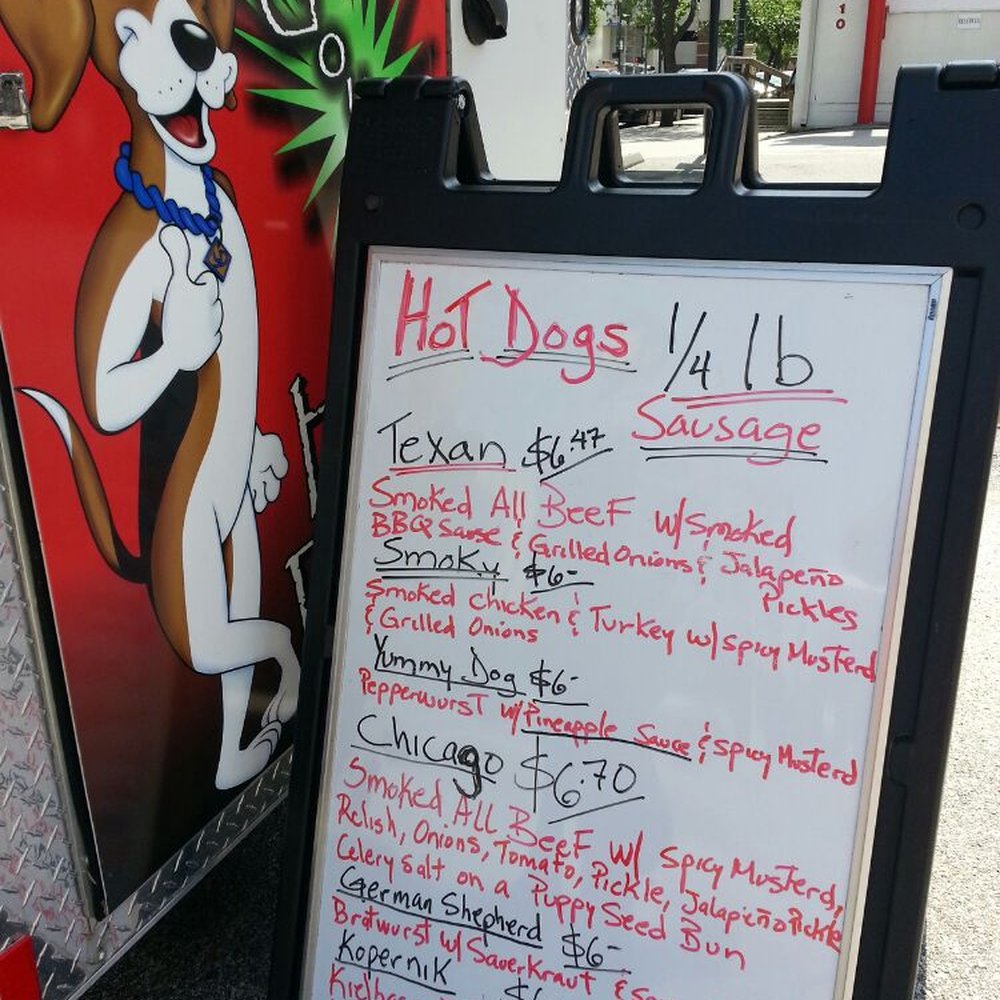 10
Hot Dogs 1/4 lb
Sausage
Texan $6.47
Smoked All Beef w/smoked
BBQ Sause & Grilled Onions & Jalapeño
Pickles
Smoky $6-
Smoked chicken & Turkey w/ spicy Musterd
& Grilled Onions
Yummy Dog $6-
Pepperwurst w/ Pineapple Sauce & spicy Musterd
Chicago $6.70
Smoked All Beef w/ spicy Musterd,
Relish, Onions, Tomato, Pickle, Jalapeño Pickle
Celery Salt on a Puppy Seed Bun
German Shepherd $6-
Bratwurst w/ Sauerkraut &
Kopernik $6